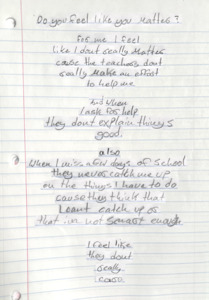 Do you feel like you matter?
For me I feel
like I dont really matter
cause the teachers dont
really make an effort
to help me
and when
I ask for help
they dont explain things
good.
also
when I miss a few days of school
they never catch me up
on the things I have to do
cause they think that
I cant catch up or
that im not smart enough
I feel like
they dont
really